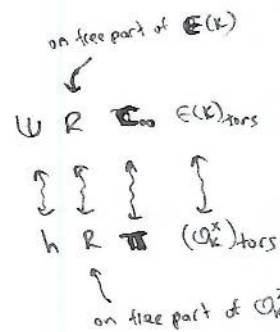 on free part of E(K)
Ш R E(K)tors
h R (O_K^x)tors
on free part of O_K^x